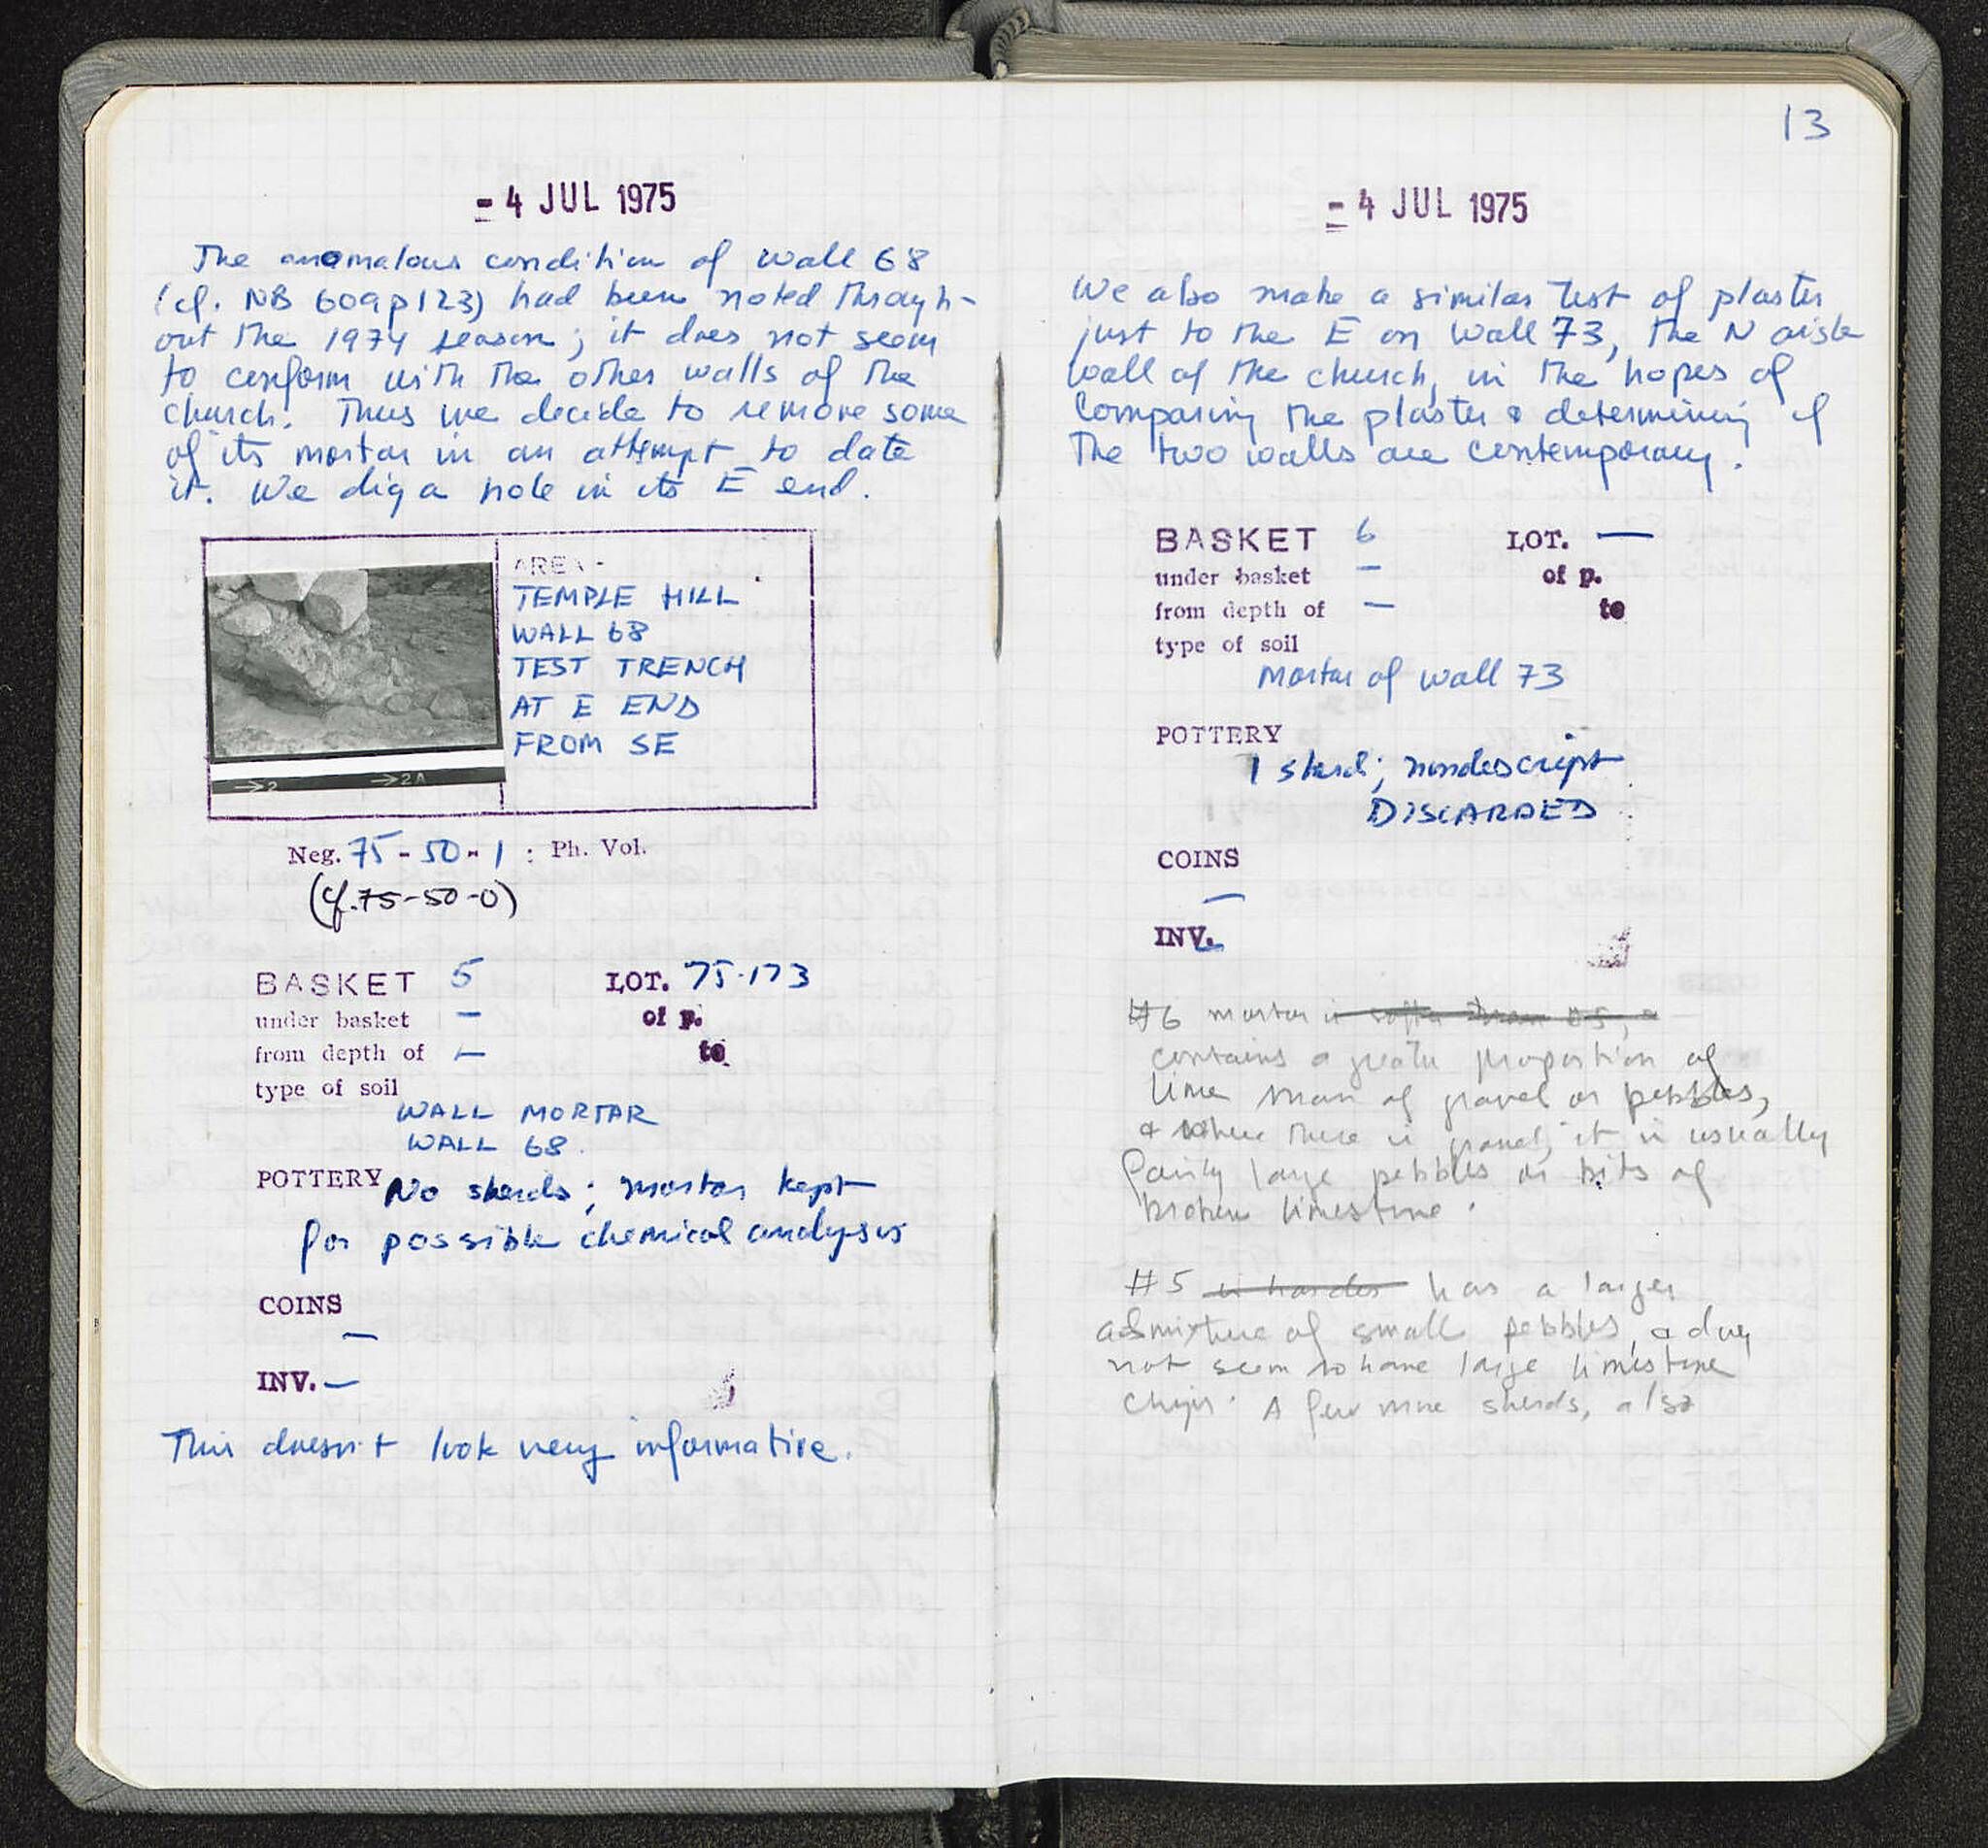 - 4 JUL 1975
The anomalous condition of wall 68
(cf. NB 609 p 123) had been noted through-
out the 1974 season; it does not seem
to conform with the other walls of the
church. Thus we decide to remove some
of its mortar in an attempt to date
it. We dig a hole in its E end.
AREA -
TEMPLE HILL
WALL 68
TEST TRENCH
AT E END
FROM SE
→2 →2A
Neg. 75-50-1 : Ph. Vol.
(cf. 75-50-0)
BASKET 5 LOT. 75-173
under basket — of p.
from depth of — to
type of soil
WALL MORTAR
WALL 68.
POTTERY No sherds; mortar kept
for possible chemical analysis
COINS
—
INV. —
This doesn't look very informative.
13
- 4 JUL 1975
We also make a similar test of plaster
just to the E on wall 73, the N aisle
wall of the church, in the hopes of
comparing the plaster & determining if
the two walls are contemporary.
BASKET 6 LOT. —
under basket — of p.
from depth of — to
type of soil
mortar of wall 73
POTTERY
1 sherd; nondescript
DISCARDED
COINS
—
INV. —
#6 mortar is softer than #5, &
contains a greater proportion of
lime than of gravel or pebbles,
& where there is gravel, it is usually
fairly large pebbles or bits of
broken limestone.
#5 is harder has a larger
admixture of small pebbles, & does
not seem to have large limestone
chips. A few more sherds, also